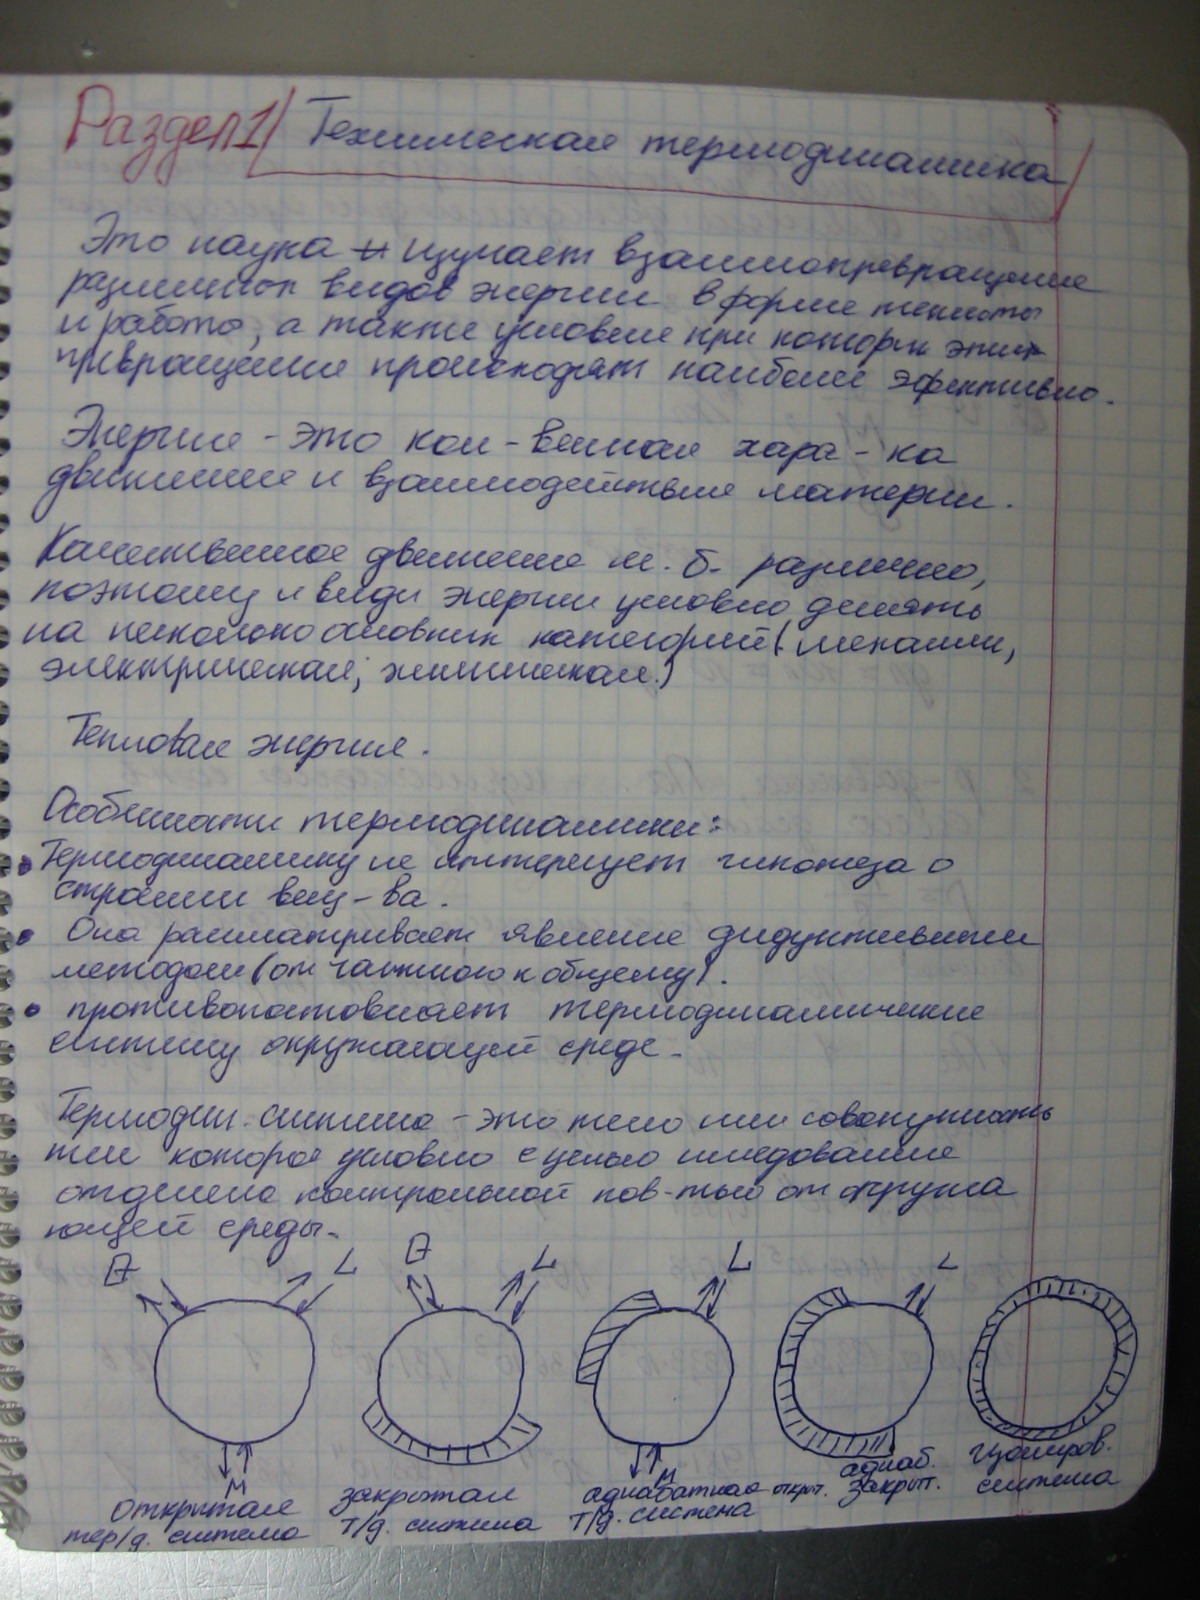 Раздел 1 Техническая термодинамика
Это наука изучает взаимопревращение
различных видов энергии в форме теплоты
и работы, а также условие при которых этих
превращения происходят наиболее эфективно.
Энергия - это кол-венная хара-ка
движение и взаимодействие материи.
Качественное движение м.б. различно,
поэтому и виды энергии условно делять
на несколько основных категорий (механич,
электрическая, химическая.)
Тепловая энергия.
Особенности термодинамики:
• Термодинамику не интересует гипотеза о
строении вещ-ва.
• Она рассматривает явление дидуктивным
методом (от частного к общему).
• противопоставляет термодинамические
систему окружающей среде.
Термодин. система - это тело или совокупность
тел которое условно с целью иследование
отделено контрольной пов-тью от окружа
ющей среды.
Q L Q L L L
M M
Открытая
тер/д. система
закрытая
т/д. система
адиабатная открыт.
т/д. система
адиаб.
закрыт.
изолиров.
система